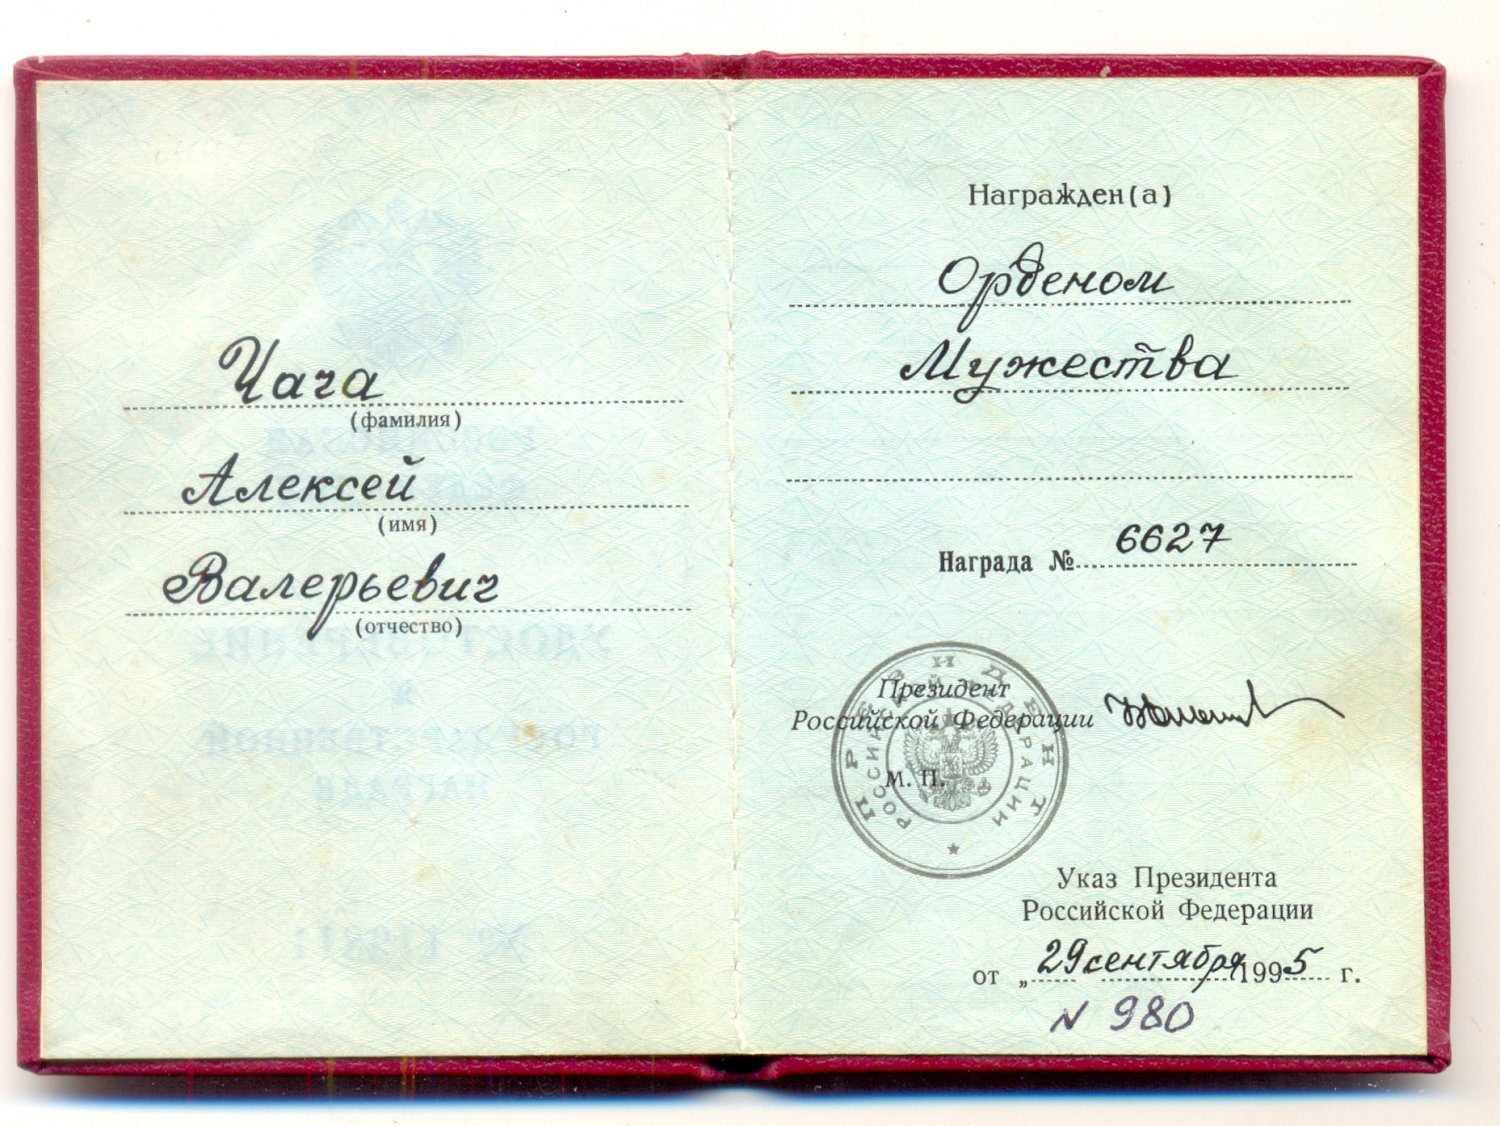 Чага
(фамилия)
Алексей
(имя)
Валерьевич
(отчество)
Награжден(а)
Орденом
Мужества
Награда № 6627
Президент
Российской Федерации
М. П.
ПРЕЗИДЕНТ
РОССИЙСКОЙ ФЕДЕРАЦИИ
Указ Президента
Российской Федерации
от „ 29 сентября 1995 г.
N 980